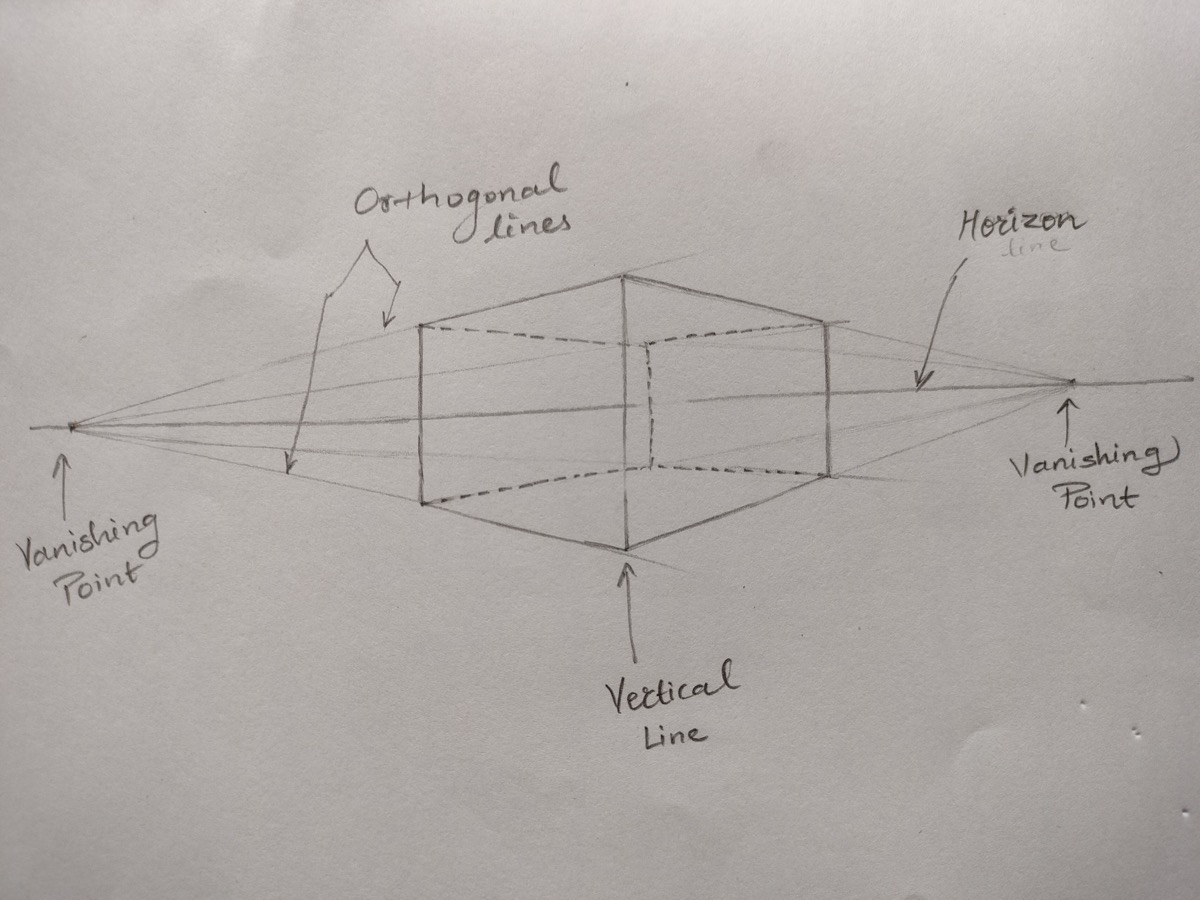 Orthogonal
lines
Horizon
line
Vanishing
Point
Vanishing
Point
Vertical
Line